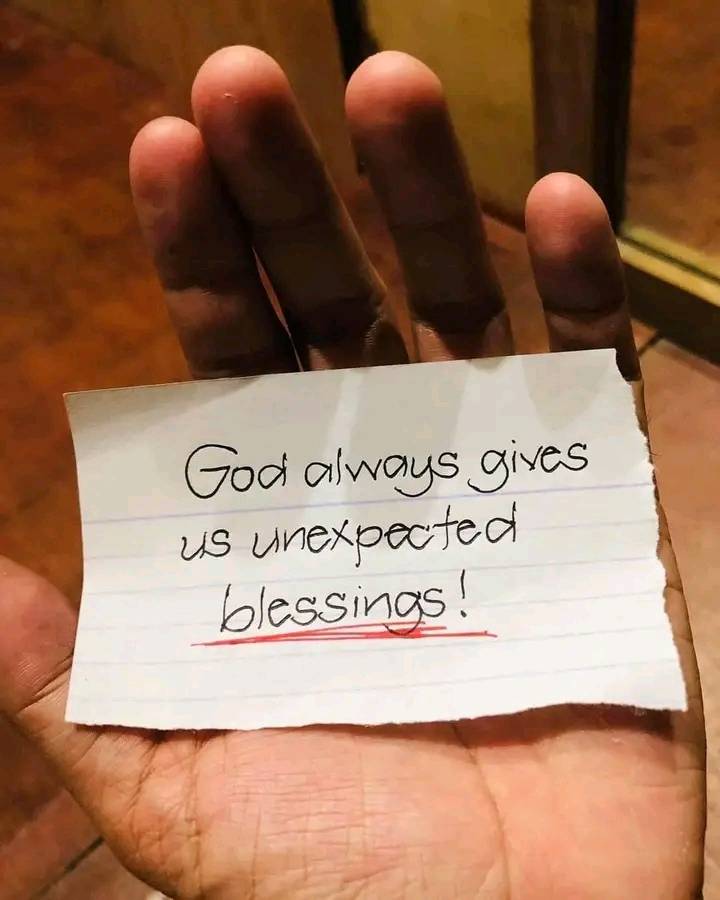 God always gives
us unexpected
blessings!